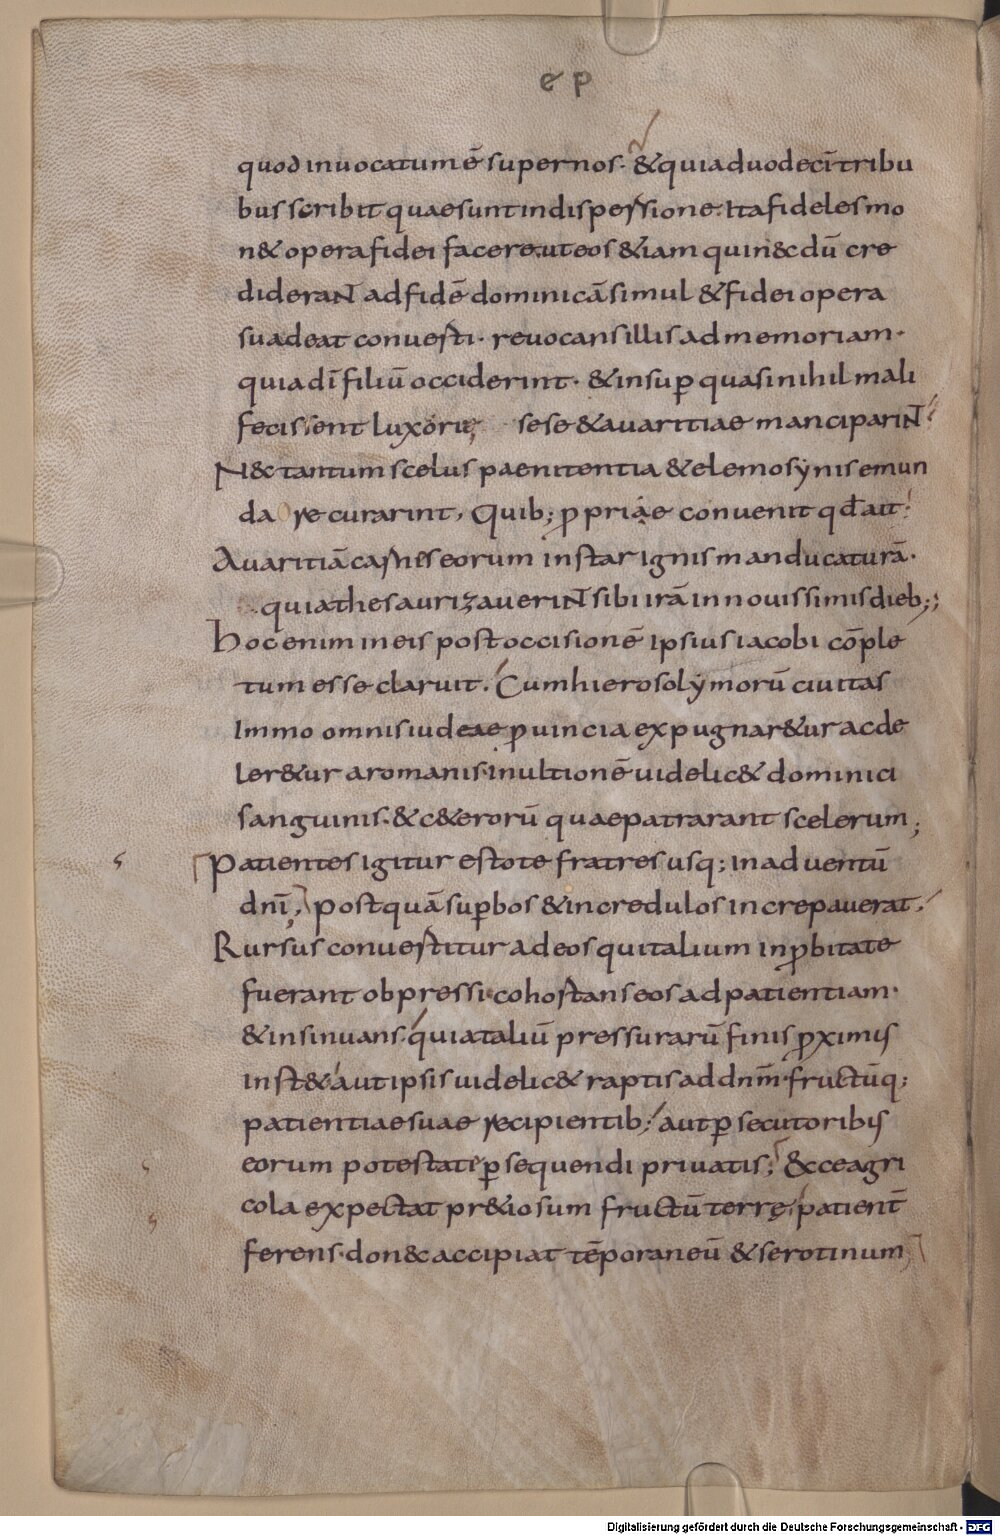 ep
quod inuocatum ē super nos · & quia duodecī tribu
bus scribit quae sunt in dispersione. Ita fideles mo
n& opera fidei facere. ut eos &iam qui n&dū cre
dideraN̄ ad fidē dominicā simul & fidei opera
suadeat conuerti · reuocans illis ad memoriam ·
quia dī filiū occiderint · & insup quasi nihil mali
fecissent luxorie sese & auaritiae mancipariN̄
N& tantum scelus paenitentia & elemosynis emun
dare curarint, Quib; ppriae conuenit qđ ait
Auaritiā carnes eorum instar ignis manducaturā ·
quia thesaurizaueriN̄ sibi irā in nouissimis dieb;;
Hoc enim in eis post occisionē ipsius iacobi cōple
tum esse claruit. Cum hierosolymorū ciuitas
Immo omnis iudeae puincia expugnar&ur ac de
ler&ur a romanis · in ultionē uidelic& dominici
sanguinis · & c&erorū quae patrarant scelerum;
Patientes igitur estote fratres usq; in aduentū
dnī, postquā supbos & incredulos increpauerat.
Rursus conuertitur ad eos qui talium inpbitate
fuerant obpressi cohortans eos ad patientiam ·
& insinuans · quia taliū pressurarū finis pximus
inst& aut ipsis uidelic& raptis ad dnm̄ · fructūq;
patientiae suae recipientib; aut psecutoribus
eorum potestate psequendi priuatis; &cce agri
cola expectat pr&iosum fructū terrę patient̄
ferens · don&c accipiat tēporaneū & serotinum,
Digitalisierung gefördert durch die Deutsche Forschungsgemeinschaft - DFG